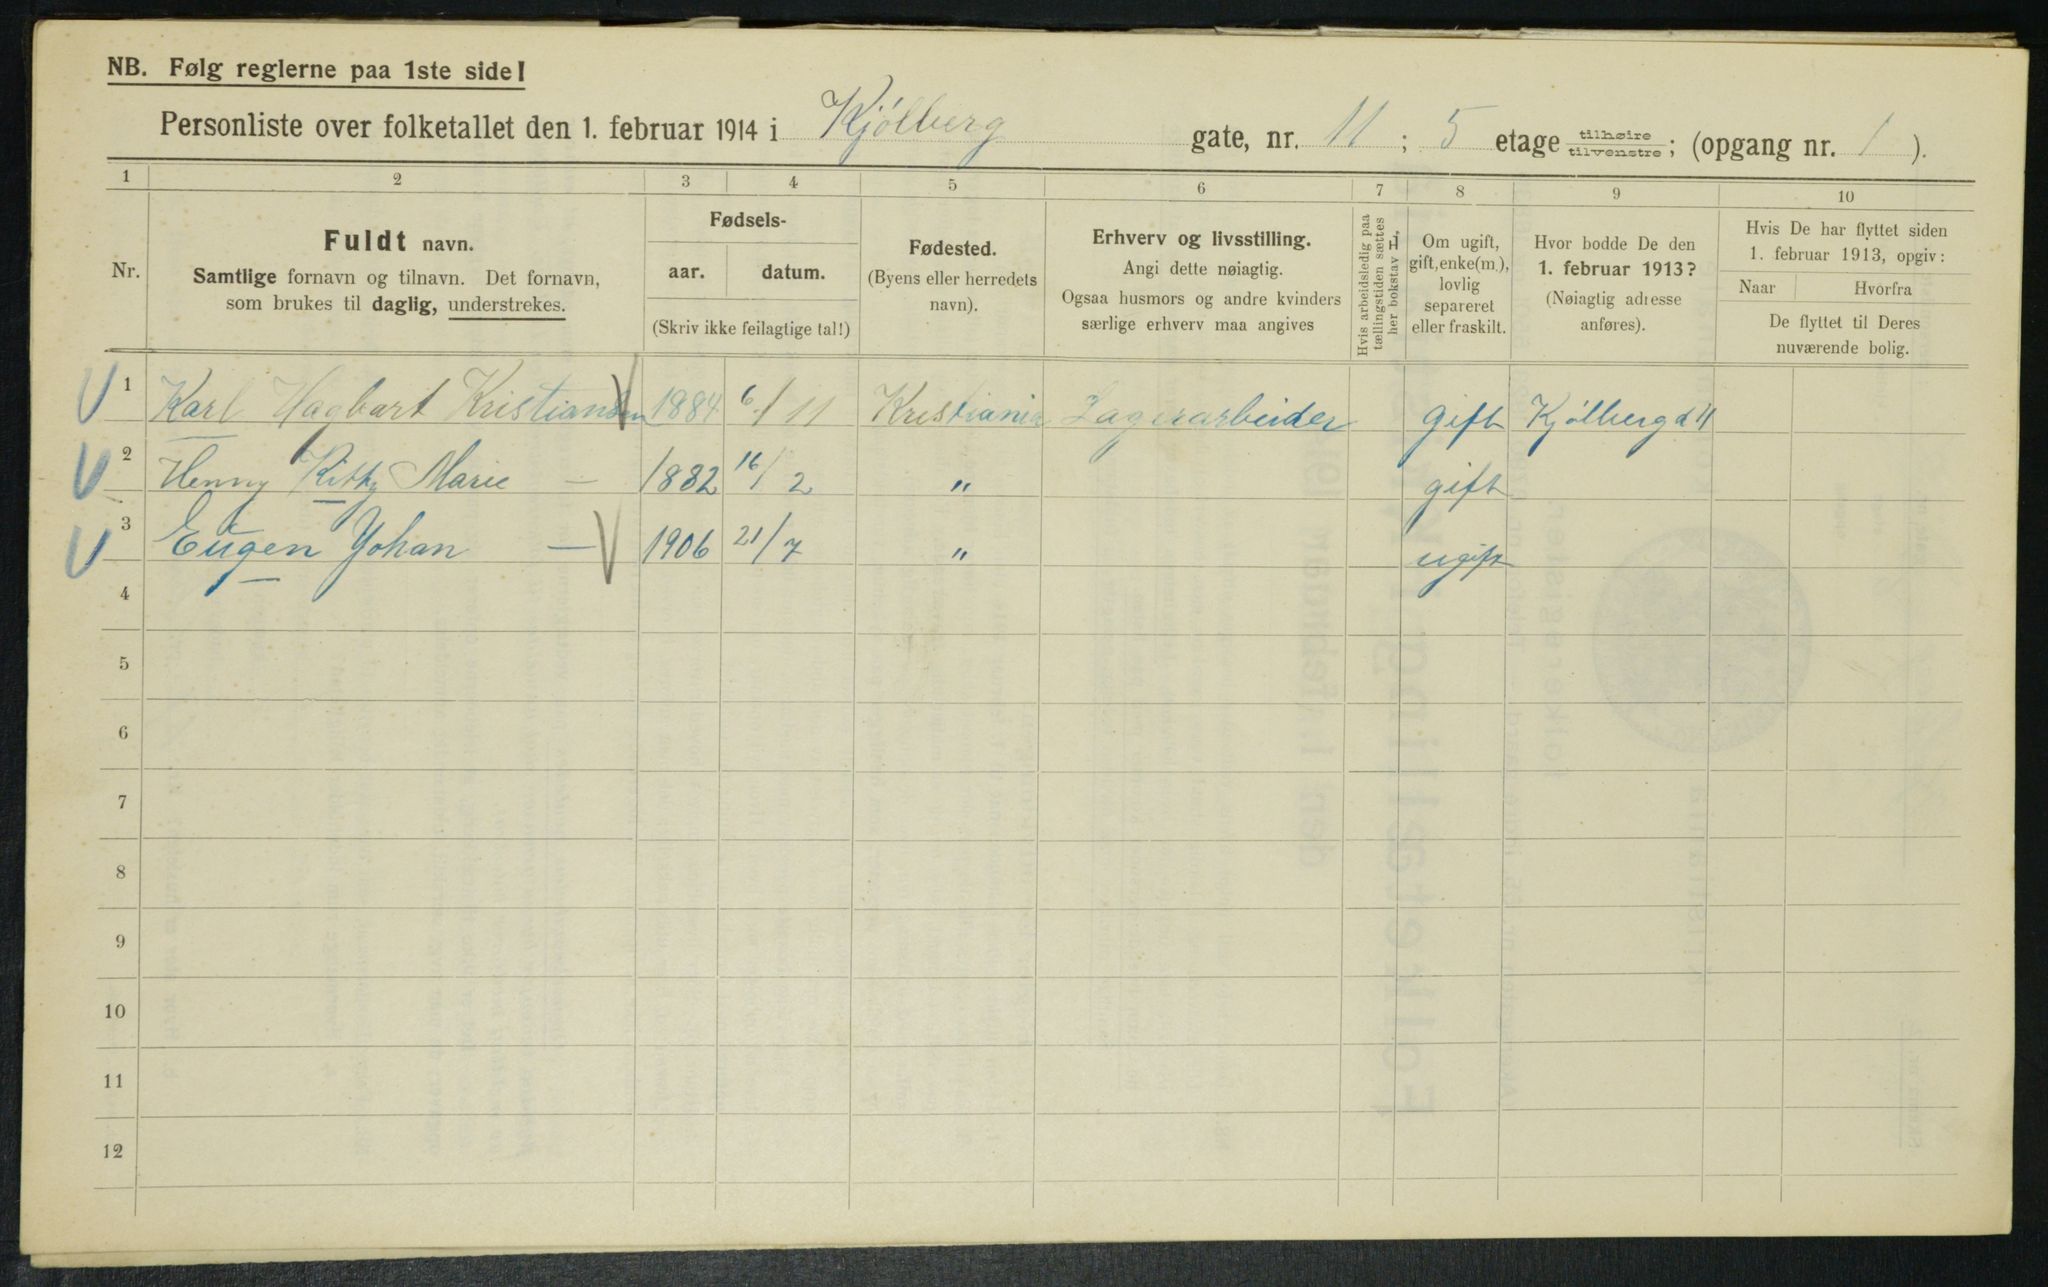 NB. Følg reglerne paa 1ste side!
Personliste over folketallet den 1. februar 1914 i Kjólberg gate, nr. 11 ; 5 etage tilhøire / tilvenstre ; (opgang nr. 1 ).
1 2 3 4 5 6 7 8 9 10
Nr.
Fuldt navn.
Samtlige fornavn og tilnavn. Det fornavn,
som brukes til daglig, understrekes.
Fødsels-
aar. datum.
(Skriv ikke feilagtige tal!)
Fødested.
(Byens eller herredets
navn).
Erhverv og livsstilling.
Angi dette nøiagtig.
Ogsaa husmors og andre kvinders
særlige erhverv maa angives
Hvis arbeidsledig paa
tællingstiden sættes
her bokstav L.
Om ugift,
gift, enke(m.),
lovlig
separeret
eller fraskilt.
Hvor bodde De den
1. februar 1913?
(Nøiagtig adresse
anføres).
Hvis De har flyttet siden
1. februar 1913, opgiv:
Naar Hvorfra
De flyttet til Deres
nuværende bolig.
1 Karl Hagbart Kristiansen 1884 6/11 Kristiania Lagerarbeider gift Kjólberg d 11
2 Henny Kitty Marie — 1882 16/2 " gift
3 Eugen Johan — 1906 21/7 " ugift
4
5
6
7
8
9
10
11
12